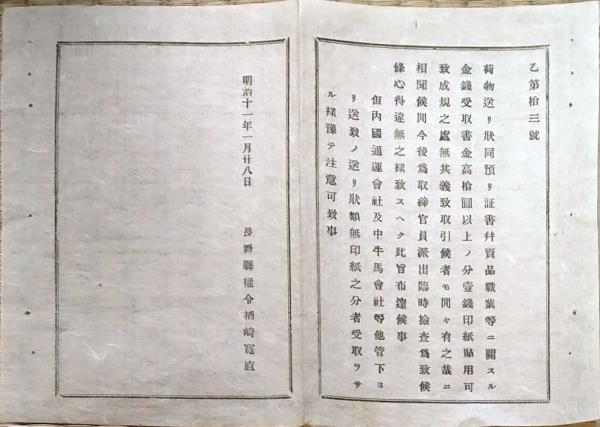 乙第拾三號
荷物送リ狀同預リ証書幷賣品職業等ニ關スル
金錢受取書金高拾圓以上ノ分壹錢印紙貼用可
致成規之處無其義致取引候者モ間々有之哉ニ
相聞候間今後爲取締官員派出臨時撿査爲致候
條心得違無之樣致スヘク此旨布達候事
但內國通運會社及中牛馬會社等他管下ヨ
リ送致ノ送リ狀類無印紙之分者受取ヲサ
ル樣豫テ注意可致事
明治十一年一月廿八日
長野縣權令楢崎寬直